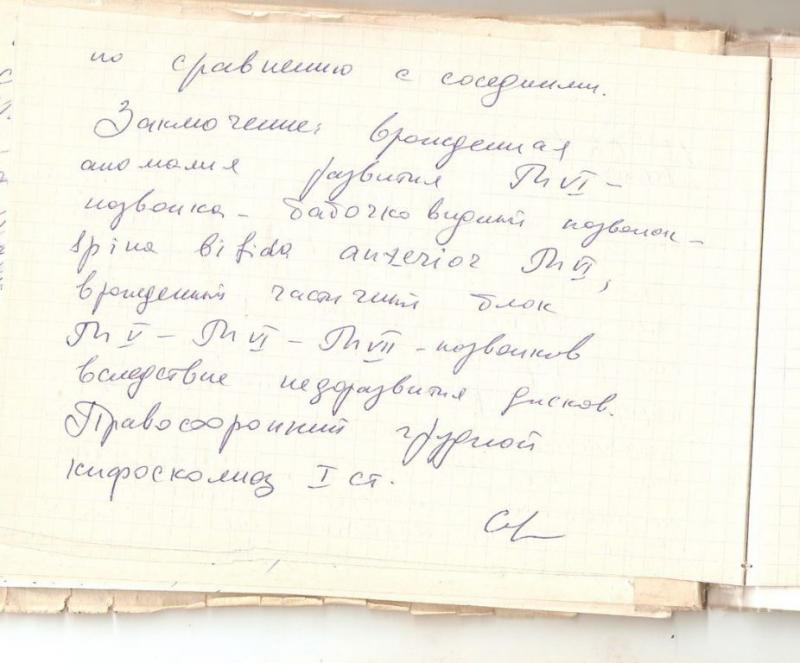 по сравнению с соседними.
Заключение: врожденная
аномалия развития Th VI -
позвонка - бабочковидный позвонок -
spina bifida anterior Th VI,
врожденный частичный блок
Th V - Th VI - Th VII - позвонков
вследствие недоразвития дисков.
Правосторонний грудной
кифосколиоз I ст.